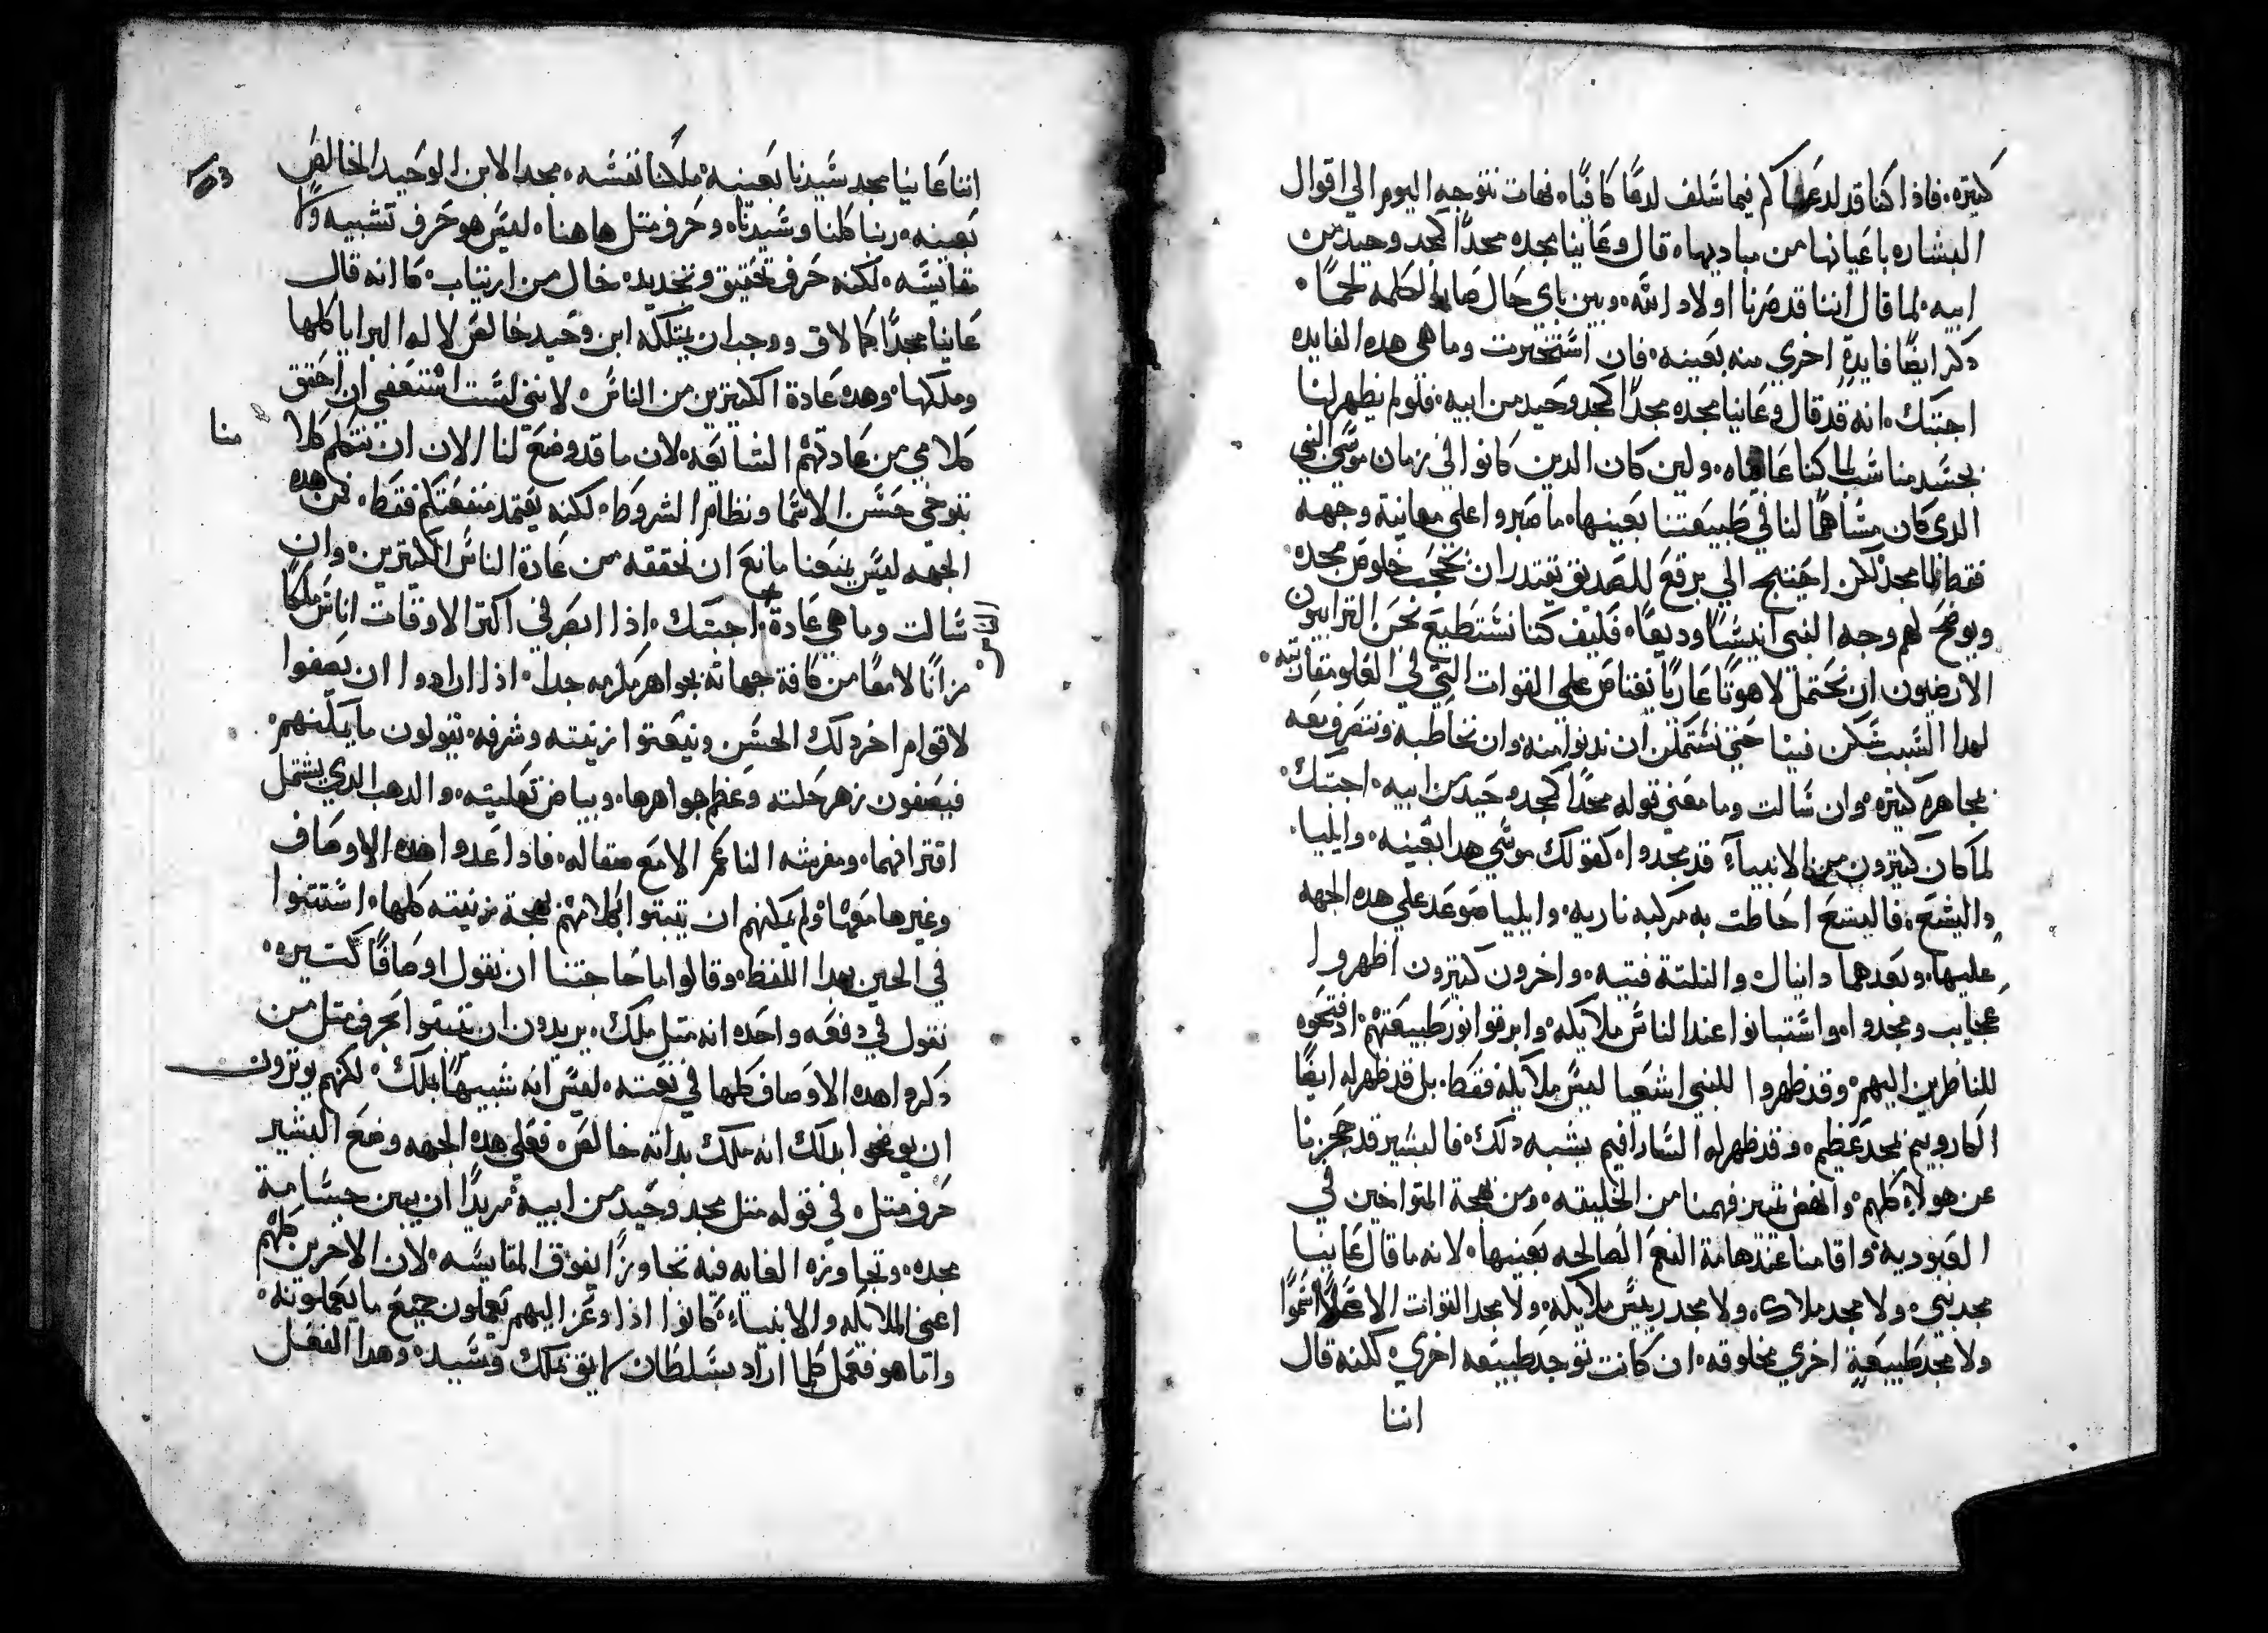 كتيره. فاذا كنا قد لدعناكم فيما سلف لدعًا كافيًا. فهات نتوجه اليوم الي اقوال
البشاره باعيانها من مباديها. قال وعاينا مجده مجدًا كمجد وحيد من
ابيه. لما قال اننا قد صرنا اولاد الله. وبين باي حال صار الكلمه لحمًا.
دكر ايضًا فايدة اخري منه بعينه. فان استخبرت وما هي هده الفايده
اجبتك. انه قد قال وعاينا مجده مجدًا كمجد وحيد من ابيه. فلو لم يظهر لنا
بجسد مناسب لما كنا عايناه. ولين كان الدين كانوا في زمان موسي النبي
الدي كان مساهمًا لنا في طبيعتنا بعينها. ما صبروا علي معاينة وجهه
فقط لما مجد لكن احيتج الي برقع للصديق يقتدر ان يحجب خلوص مجده
ويوضح لهم وجه النبي انيسًا وديعًا. فكيف كنا نستطيع نحن الترابيون
الارضيون ان نحتمل لاهوتًا عاريًا يعتاص علي القوات التي في العلو مقاربته.
لهدا السبب سكن فينا حتي نتمكن ان ندنوا منه وان نخاطبه ونتصرف معه
بمجاهره كتيره. وان سالت وما معني قوله مجدًا كمجد وحيد من ابيه. اجبتك.
لما كان كتيرون من الانبياء قد مجدوا. كقولك موسي هدا بعينه. وايليا.
واليشع. فاليشع احاطت به مركبه ناريه. وايليا صوعد علي هده الجهه
عليها. وبعدهما دانيال والتلتة فتيه. واخرون كتيرون اظهروا
عجايب ومجدوا. واستبانوا عند الناس ملايكه. وابرقوا نور طبيعتهم. اد فتحوه
للناظرين اليهم. وقد ظهروا للنبي اشعيا ليس ملايكه فقط. بل قد ظهر له ايضًا
الكاروبيم بمجد عظيم. وقد ظهر له السارافيم يشبه دلك. فالبشير قد حجزنا
عن هولاء كلهم. وانهض تمييز فهمنا من الخليقه. ومن بهجة المتواخين في
العبوديه. واقامنا عند هامة النعم الصالحه بعينها. لانه ما قال عاينا
مجد نبي. ولا مجد ملاك. ولا مجد رييس ملايكه. ولا مجد القوات الاعلا سموًا
ولا مجد طبيعة اخري مخلوقه. ان كانت توجد طبيعه اخري. لكنه قال
اننا
اننا عاينا مجد سيدنا بعينه. ملكنا نفسه. مجد الابن الوحيد الخالص
بعينه. ربنا كلنا وسيدنا. وحرف متل هاهنا. ليس هو حرف تشبيه ولا
مقايسه. لكنه حرف تحقيق وتحديد. خال من ارتياب. كما انه قال
عاينا مجدًا كما لاق ووجب ان يمتلكه ابن وحيد خالص لاله البرايا كلها
وملكها. وهده عادة الكتيرين من الناس. لانني لست استعفي ان احقق
كلامي من عادتهم الشايعه. لان ما قد وضع لنا الان ان نتكلم كلامًا
منا
نتوخي حسن الاسما ونظام الشروط. لكنه يعتمد منفعتكم فقط. فمن هده
الجهه ليس يمنعنا مانع ان نحققه من عادة الناس الكتيرين. وان
سالت وما هي عادة. اجبتك. اذا ابصر في اكتر الاوقات اناس ملكًا
مزانًا لامعًا من كافة جهاته بجواهر مكرمه جدا. اذا ارادوا ان يصفوا
لاقوام اخر دلك الحسن وينعتوا زينته وشرفه. يقولون ما يمكنهم.
فيصفون زهر حلته وعظم جواهرها. وبياض بغليته. والدهب الدي يشتمل
اقترانهما. ومفرشه الناعم الامع صقاله. فادا عدوا هده الاوصاف
وغيرها معها. ولم يمكنهم ان يتبتوا بكلامهم بهجة زينته كلها. استتنوا
في الحين بهدا اللفظ. وقالوا ما حاجتنا ان نقول اوصافًا كتيره.
نقول في دفعه واحده انه متل ملك. يريدون ان يتبتوا بحرف متل من
دكروا هده الاوصاف كلها في نعته. ليس انه شبيهًا بملك. لكنهم يوترون
ان يوضحوا بدلك انه ملك بداته خالص. فعلي هده الجهه وضع البشير
حرف متل. في قوله متل مجد وحيد من ابيه مريدًا ان يبين جسامة
مجده. وتجاوزه الغايه فيه تجاوزًا يفوق المقايسه. لان الاخرين كلهم
اعني الملايكه والانبياء. كانوا اذا وعز اليهم يعملون جميع ما يعملونه.
واما هو فعمل كلما اراد بسلطان لايق بملك وسيد. وهدا الفعل